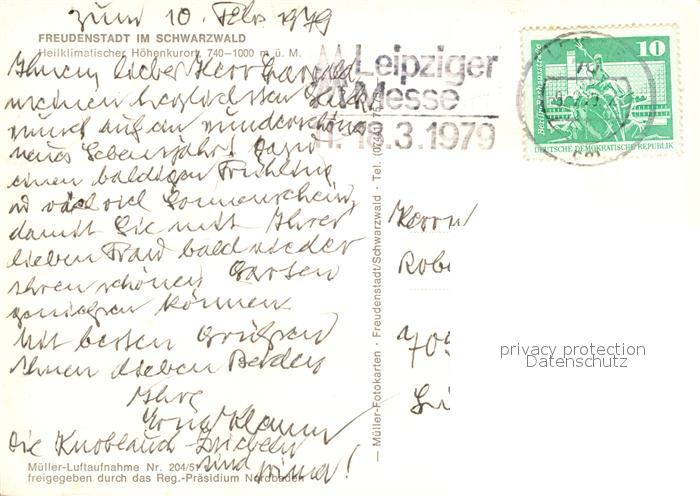 zum 10. Febr. 1979
FREUDENSTADT IM SCHWARZWALD
Heilklimatischer Höhenkurort, 740–1000 m ü. M.
Ihnen, lieber Herr
meinen herzlichsten Glück
wunsch auf ein wunderschönes
neues Lebensjahr! Dazu
einen baldigen Frühling
u viel viel Sonnenschein,
damit Sie mit Ihrer
lieben Frau bald wieder
Ihren schönen Garten
genießen können.
Mit besten Grüßen
Ihnen lieben Beiden
Ihre
Die Knoblauch-Zwiebeln
sind prima!
Müller-Luftaufnahme Nr. 204/51
freigegeben durch das Reg.-Präsidium Nordbaden
— Müller-Fotokarten · Freudenstadt/Schwarzwald · Tel. (074
Leipziger
Messe
11.-18.3.1979
Berlin, Rathausstraße
10
DEUTSCHE DEMOKRATISCHE REPUBLIK
Herrn
Robe
705
privacy protection
Datenschutz